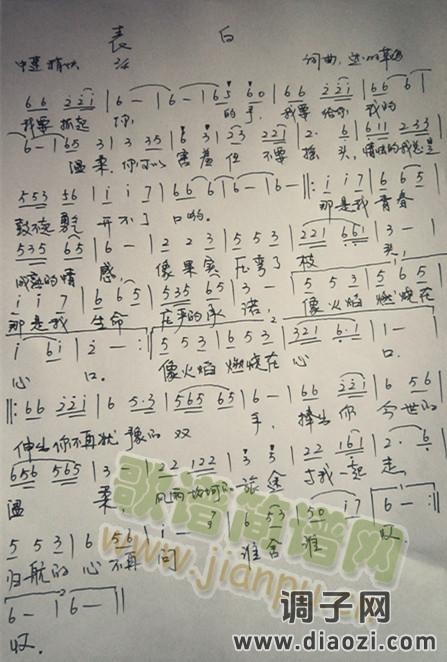 表 白
中速 稍快
词曲：
66 221 | 6 - | 6 - | 65 60 | 66 221 | 66 6 |
我要抓起 你 的手，我要给你 我的
6 - | 65 3 | 3 35 | 6 3 | 23 221 | 2· 6 | 611 233 |
温柔，你可以害羞但 不要摇 头，情怯的我总是
553 56 | i i 7 | 66 6 | 6 - | 6 - ‖: i i 7 | 6 6 5 |
鼓不起勇气 开不了 口哟。 那是我 青春
535 65 | 6 - | 2 2 3 | 5 5 3 | 221 6 | 3 - |
成熟的情 感，像果实 压弯了 枝 头，
i i 7 | 6 6 5 | 535 65 | 3 - | 5 5 3 | 5 6 5 |
那是我 生命 庄严的承 诺，像火焰 燃烧在
i 6i | 2 - :‖ 5 5 3 | 6 5 3 | 321 6·1 | 1 -
心 口。 像火焰 燃烧在 心 口。
‖: 66 22i | 6 5·3 | 565 65 | 6 - | 66 22i | 6 56 |
伸出你不再犹 豫的 双 手，捧出你 今世的
656 565 | 3 - | 22 122 | 3 5 | 22 161 | 2· 6 |
温 柔，风雨坎坷的 旅途 与我一起 走，
5 5 3 | 6 56 | i - | 6 53 | 50 i7 | 6 - :‖
归航的 心不再 问 谁舍 谁 收。
6 - | 6 - ‖
收。
歌谱简谱网
www.jianpu.cn
调子网
www.diaozi.com